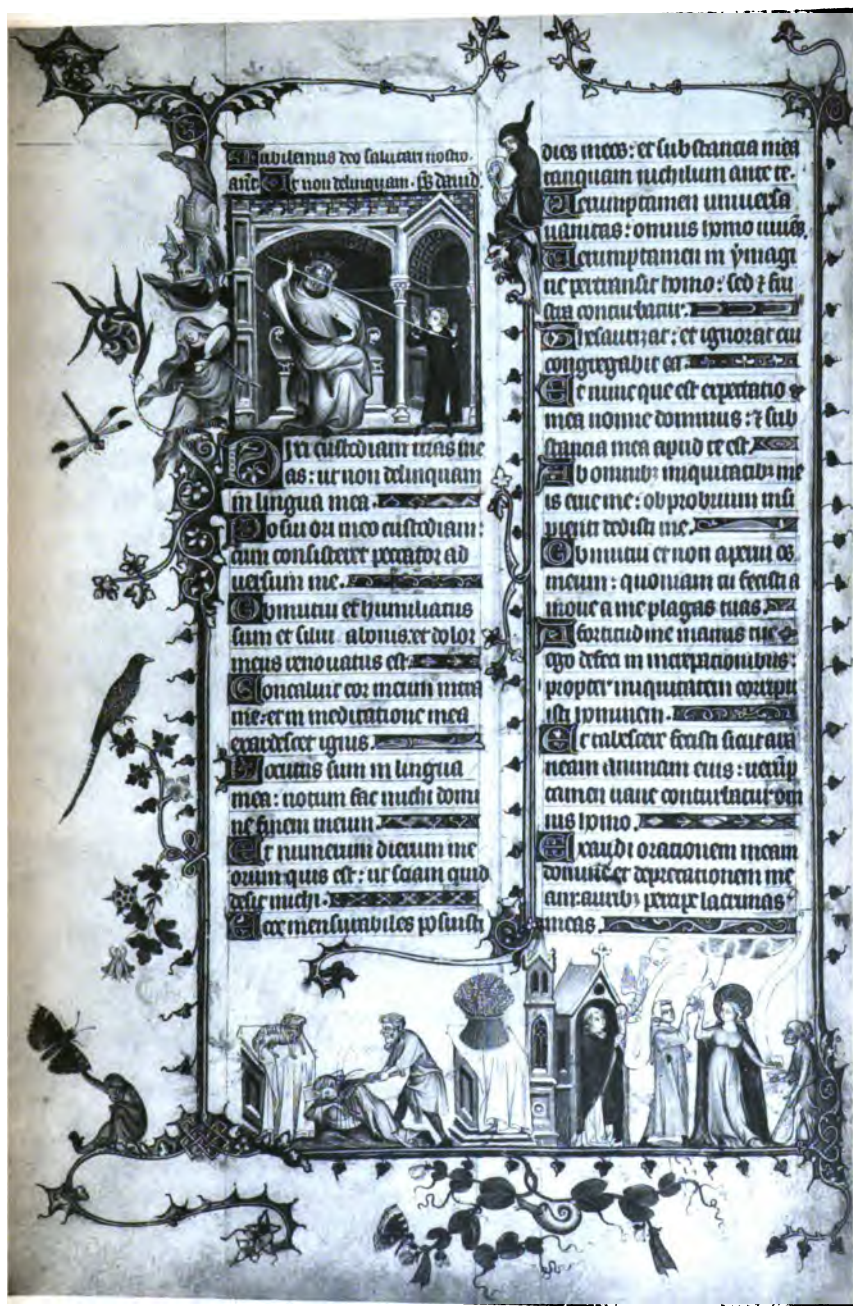 Jubilemus deo salutari nostro.
añt. Ut non delinquam. ps̄ david.
Dixi custodiam vias me
as: ut non delinquam
in lingua mea.
Posui ori meo custodiam:
cum consisteret peccator ad
versum me.
Obmutui et humiliatus
sum et silui a bonis: et dolor
meus renovatus est.
Concaluit cor meum intra
me: et in meditatione mea
exardescet ignis.
Locutus sum in lingua
mea: notum fac michi domi
ne finem meum.
Et numerum dierum me
orum quis est: ut sciam quid
desit michi.
Ecce mensurabiles posuisti
dies meos: et substancia mea
tanquam nichilum ante te.
Verumptamen universa
vanitas: omnis homo vivēs.
Verumptamen in ymagi
ne pertransit homo: sed ⁊ frus
tra conturbatur.
Thesaurizat: et ignorat cui
congregabit ea.
Et nunc que est expectatio
mea nonne dominus: ⁊ sub
stancia mea apud te est.
Ab omnibꝫ iniquitatibꝫ me
is erue me: obprobrium insi
pienti dedisti me.
Obmutui et non aperui os
meum: quoniam tu fecisti a
move a me plagas tuas.
A fortitudine manus tue
ego defeci in increpationibus:
propter iniquitatem corripu
isti hominem.
Et tabescere fecisti sicut ara
neam animam eius: verūp
tamen vane conturbatur om
nis homo.
Exaudi orationem meam
domine et deprecationem me
am: auribꝫ percipe lacrimas
meas.